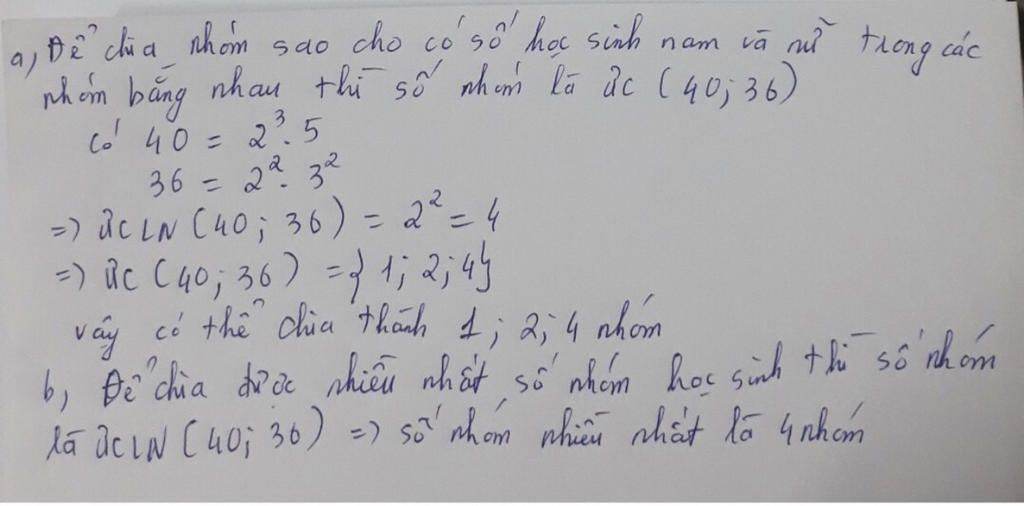 a, Để chia nhóm sao cho có số học sinh nam và nữ trong các
nhóm bằng nhau thì số nhóm là ƯC (40; 36)
Có 40 = 2³ . 5
36 = 2² . 3²
=> ƯCLN (40; 36) = 2² = 4
=> ƯC (40; 36) = { 1; 2; 4}
vậy có thể chia thành 1; 2; 4 nhóm
b, Để chia được nhiều nhất số nhóm học sinh thì số nhóm
là ƯCLN (40; 36) => số nhóm nhiều nhất là 4 nhóm